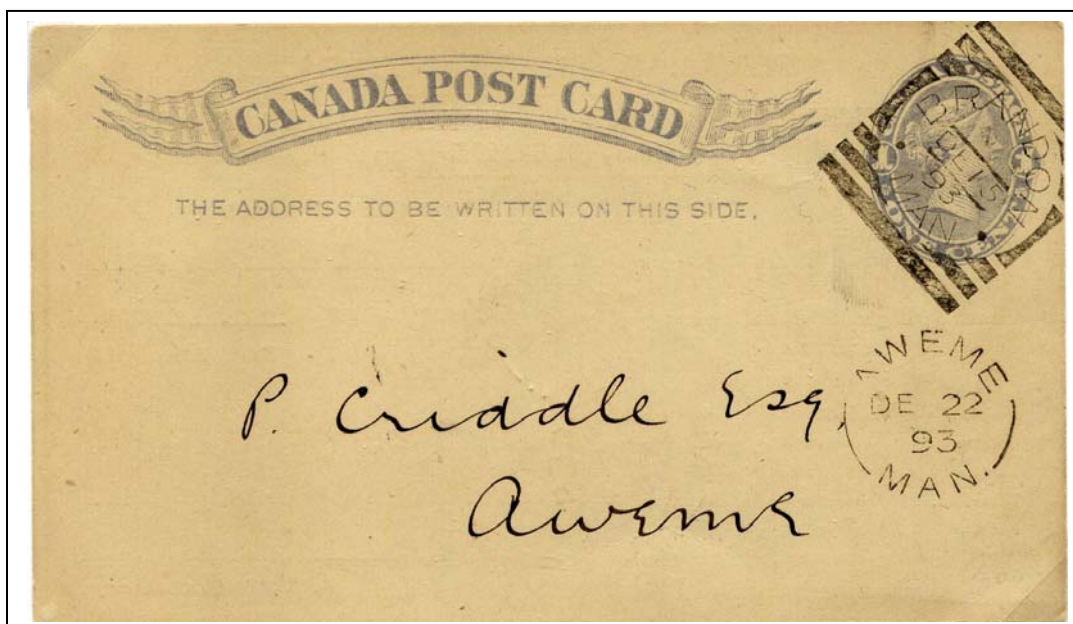 CANADA POST CARD
THE ADDRESS TO BE WRITTEN ON THIS SIDE.
BRANDON
DE 15
93
MAN
ONE CENT
P. Criddle Esq.
Aweme
AWEME
DE 22
93
MAN.